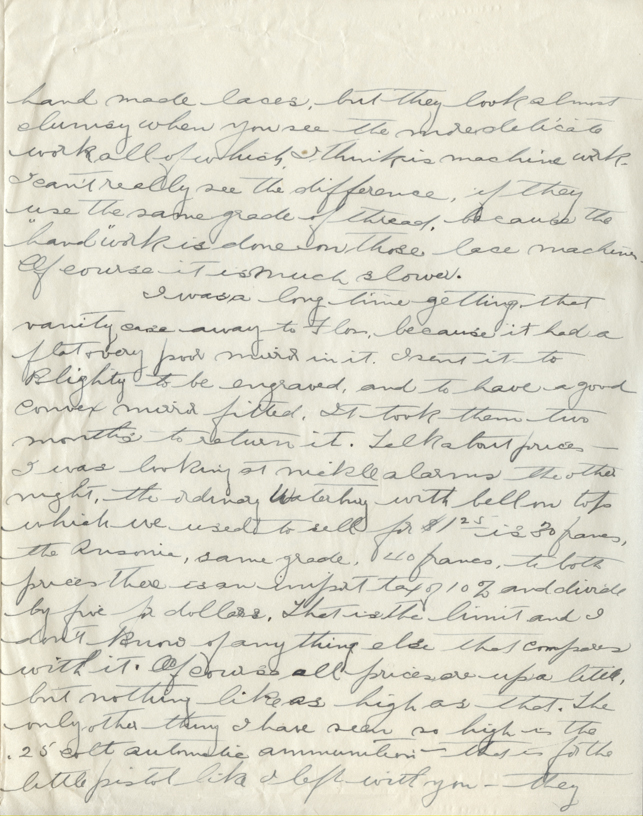 hand made laces, but they look almost
clumsy when you see the more delicate
work, all of which, I think is machine work.
I can't really see the difference, if they
use the same grade of thread, because the
"hand" work is done on those lace machines.
Of course it is much slower.
I was a long time getting that
vanity case away to Flos, because it had a
flat very poor mirror in it. I sent it to
Blighty to be engraved, and to have a good
convex mirror fitted. It took them two
months to return it. Talk about prices —
I was looking at nickle alarms the other
night, the ordinary Waterbury with bell on top
which we used to sell for $1.25 is 30 francs,
the Ansonia, same grade, 40 francs, to both
prices there is an import tax of 10% and divide
by five for dollars. That is the limit and I
don't know of anything else that compares
with it. Of course all prices are up a little,
but nothing like as high as that. The
only other thing I have seen so high is the
.25 colt automatic ammunition — this is for the
little pistol like I left with you — they